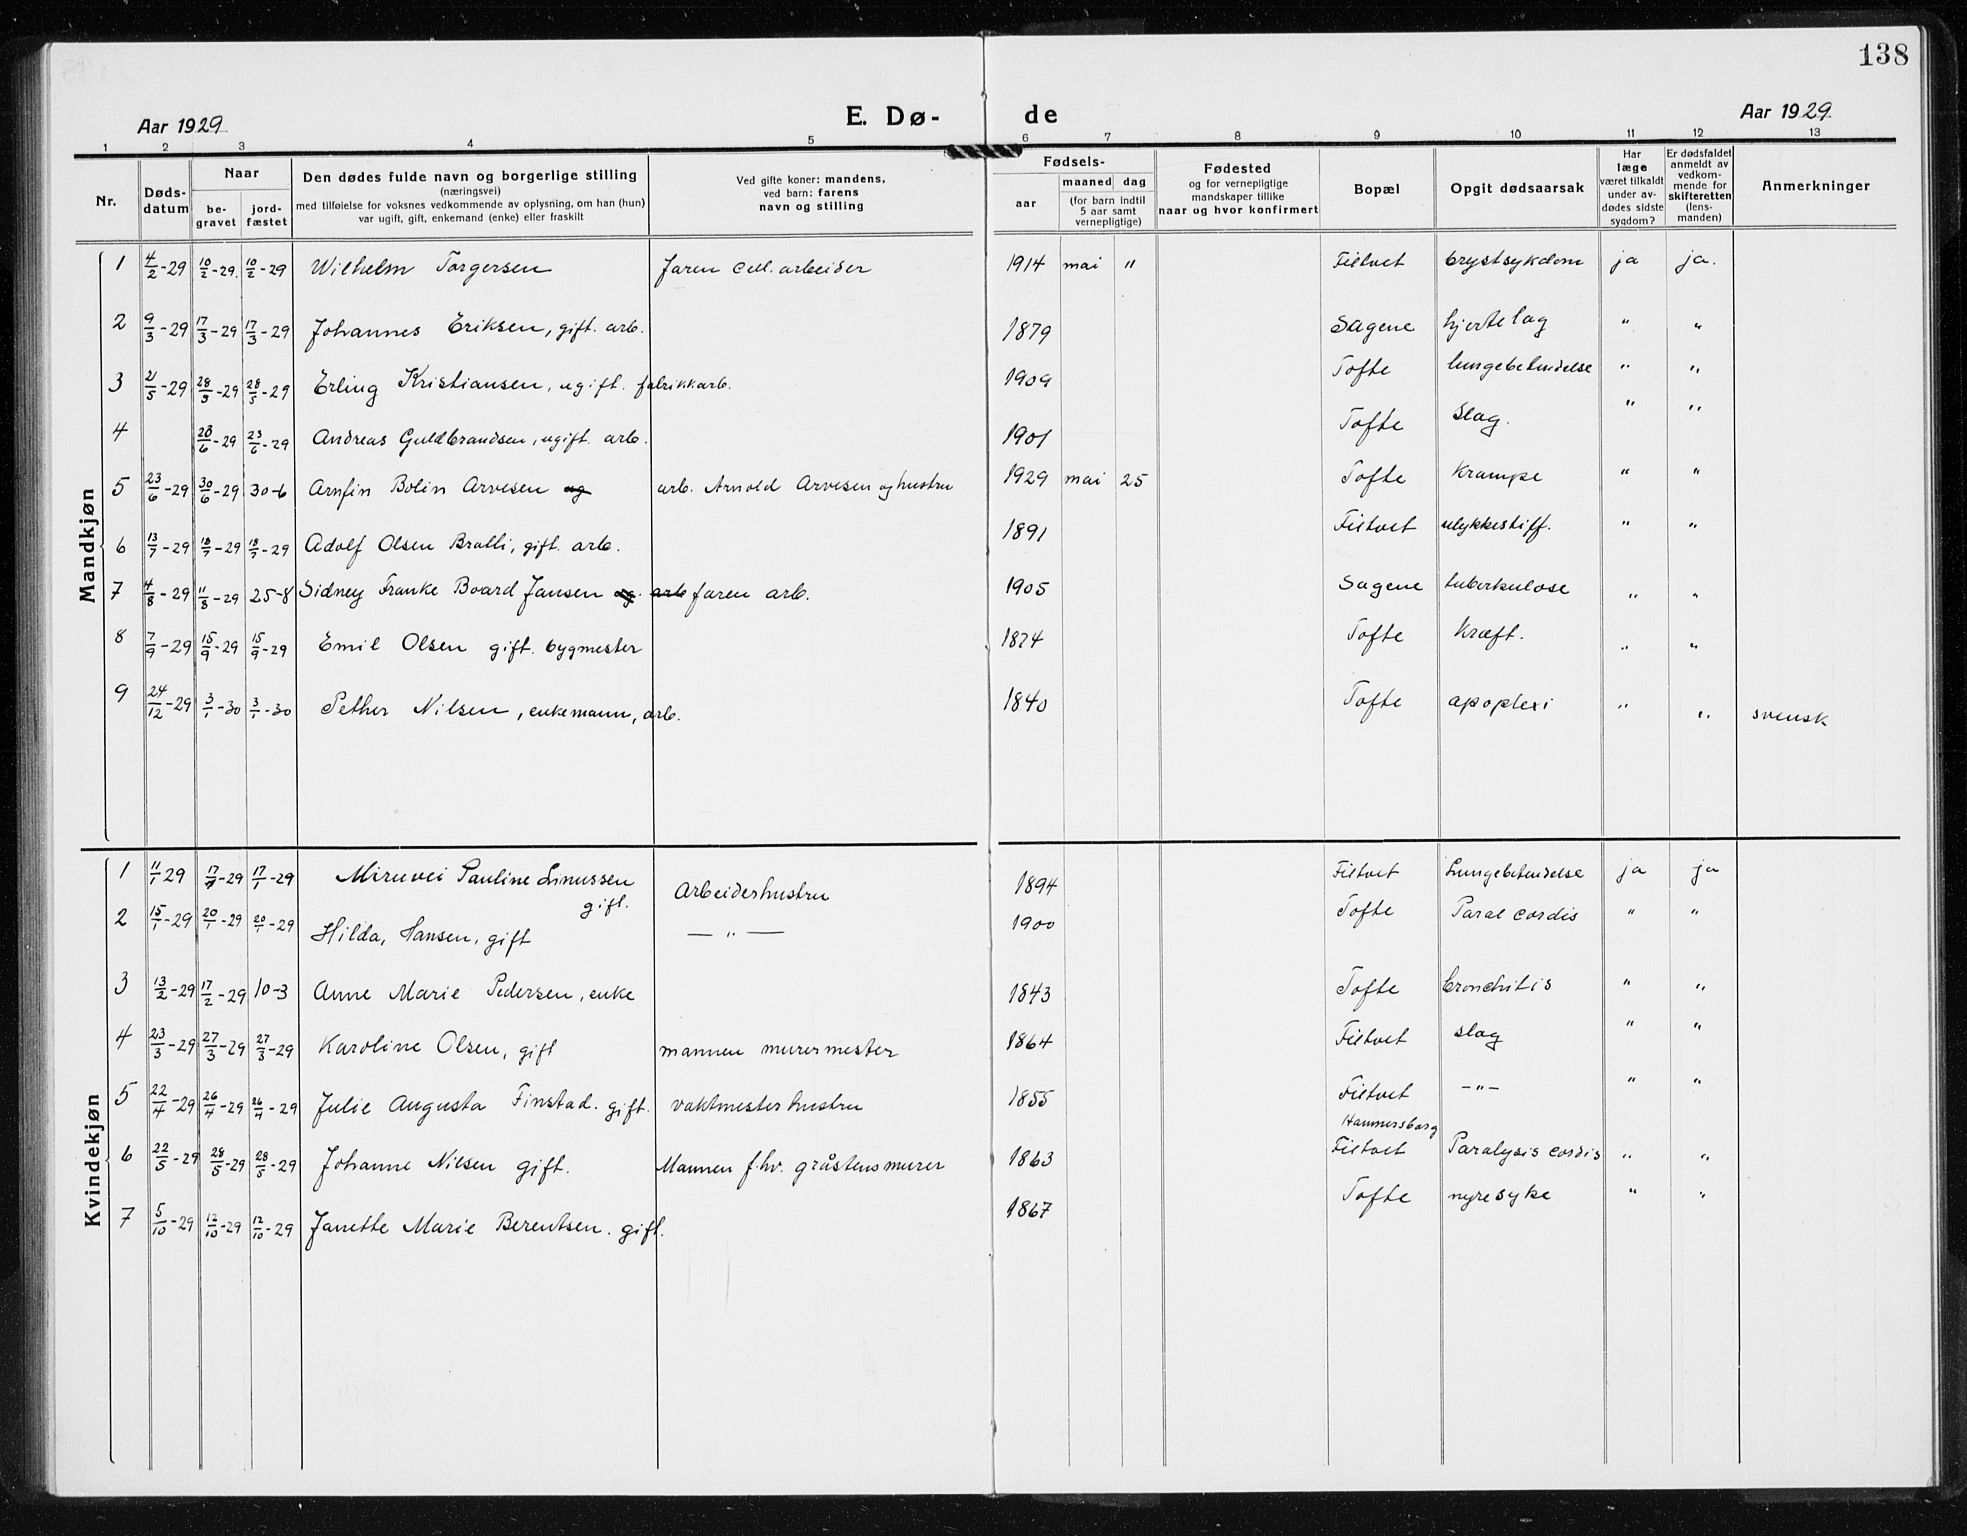 138
Aar 1929 E. Dø- de Aar 1929
1 2 3 4 5 6 7 8 9 10 11 12 13
Nr. Døds-datum Naar be-gravet jord-fæstet Den dødes fulde navn og borgerlige stilling (næringsvei) med tilføielse for voksnes vedkommende av oplysning, om han (hun) var ugift, gift, enkemand (enke) eller fraskilt Ved gifte koner: mandens, ved barn: farens navn og stilling Fødsels- aar maaned dag (for barn indtil 5 aar samt vernepligtige) Fødested og for vernepligtige mandskaper tillike naar og hvor konfirmert Bopæl Opgit dødsaarsak Har læge været tilkaldt under av-dødes sidste sygdom? Er dødsfaldet anmeldt av vedkom-mende for skifteretten (lens-manden) Anmerkninger
Mandkjøn
1 4/2-29 10/2-29. 10/2-29 Wilhelm Torgersen Faren cell. arbeider 1914 mai " Filtvet brystsykdom ja ja.
2 9/3-29 17/3-29 17/3-29 Johannes Eriksen, gift. arb. 1879 Sagene hjertelag " "
3 21/5-29 28/5-29 28/5-29 Erling Kristiansen, ugift. fabrikkarb. 1909 Tofte lungebetendelse " "
4 23/6-29 23/6-29 Andreas Guldbrandsen, ugift. arb. 1901 Tofte slag. " "
5 23/6-29 30/6-29 30-6 Arnfin Bolin Arvesen ug arb. Arnold Arvesen og hustru 1929 mai 25 Tofte Krampe " "
6 13/7-29 18/7-29 18/7-29 Adolf Olsen Bratli, gift. arb. 1891 Filtvet ulykkestilf. " "
7 4/8-29 11/8-29 25-8 Sidney Franke Board Jansen ug. arb faren arb. 1905 Sagene tuberkulose " "
8 7/9-29 15/9-29 15/9-29 Emil Olsen gift. bygmester 1874 Tofte Kræft. " "
9 24/12-29 3/1-30 3/1-30 Pether Nilsen, enkemann, arb. 1840 Tofte apoplexi " " svensk
Kvindekjøn
1 11/1 29 17/1-29 17/1-29 Pauline Linussen gift. Arbeiderhustru 1894 Filtvet Lungebetendelse ja ja
2 15/1-29 20/1-29 20/1-29 Hilda, Hansen, gift — " — 1900 Tofte Paral cordis " "
3 13/2-29 17/2-29 10-3 Anne Marie Pedersen, enke 1843 Tofte bronchitis " "
4 23/3-29 27/3-29 27/3-29 Karoline Olsen, gift mannen murermester 1864 Filtvet slag " "
5 22/4-29 26/4-29 26/4-29 Julie Augusta Finstad. gift. vaktmesterhustru 1855 Filtvet -"- " "
6 22/5-29 28/5-29 28/5-29 Johanne Nilsen gift. Mannen f.hv. gråstensmurer 1863 Hammersborg Filtvet Paralysis cordis " "
7 5/10-29 12/10-29 12/10-29 Janette Marie Berentsen. gift. 1867 Tofte nyresyke " "